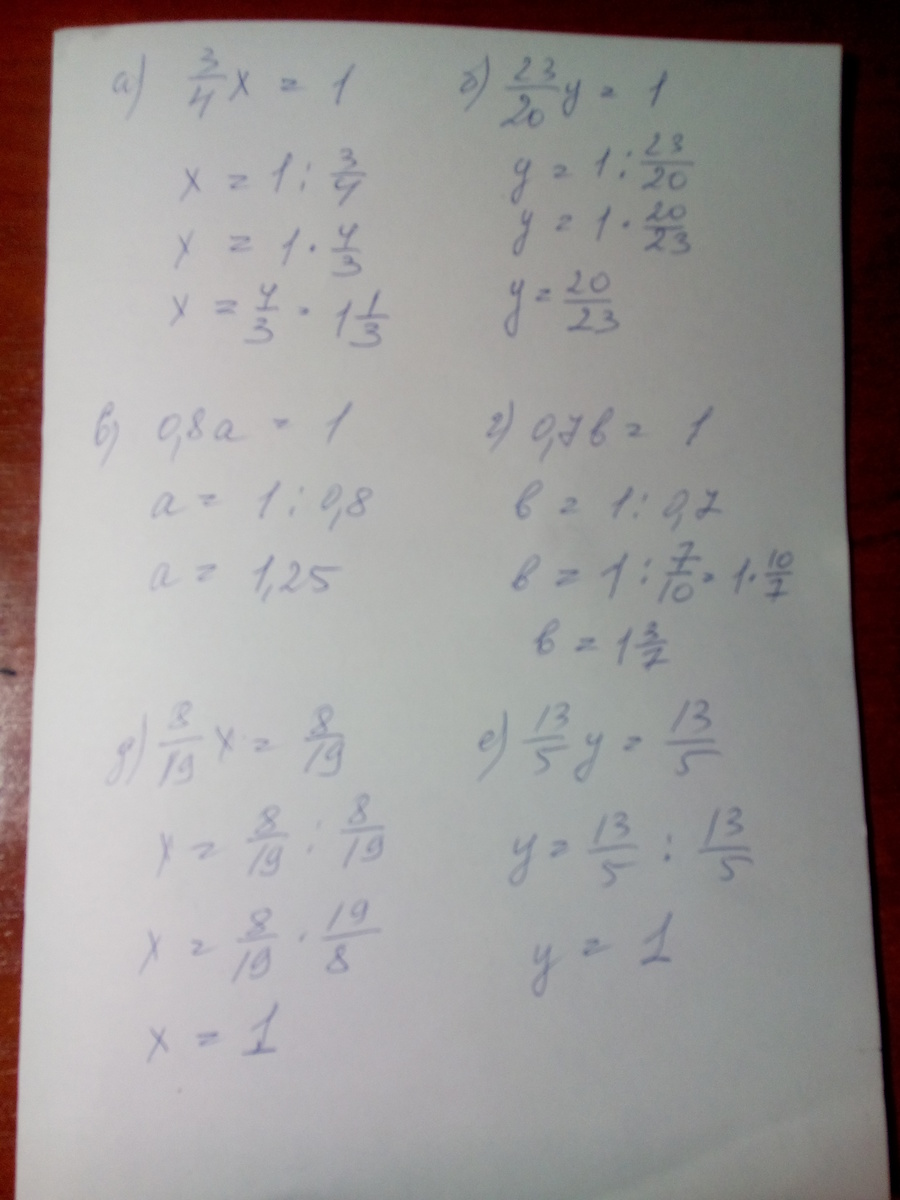 а) 3/4 x = 1
x = 1 : 3/4
x = 1 · 4/3
x = 4/3 = 1 1/3
б) 23/20 y = 1
y = 1 : 23/20
y = 1 · 20/23
y = 20/23
в) 0,8a = 1
a = 1 : 0,8
a = 1,25
г) 0,7в = 1
в = 1 : 0,7
в = 1 : 7/10 = 1 · 10/7
в = 1 3/7
д) 8/19 x = 8/19
x = 8/19 : 8/19
x = 8/19 · 19/8
x = 1
е) 13/5 y = 13/5
y = 13/5 : 13/5
y = 1